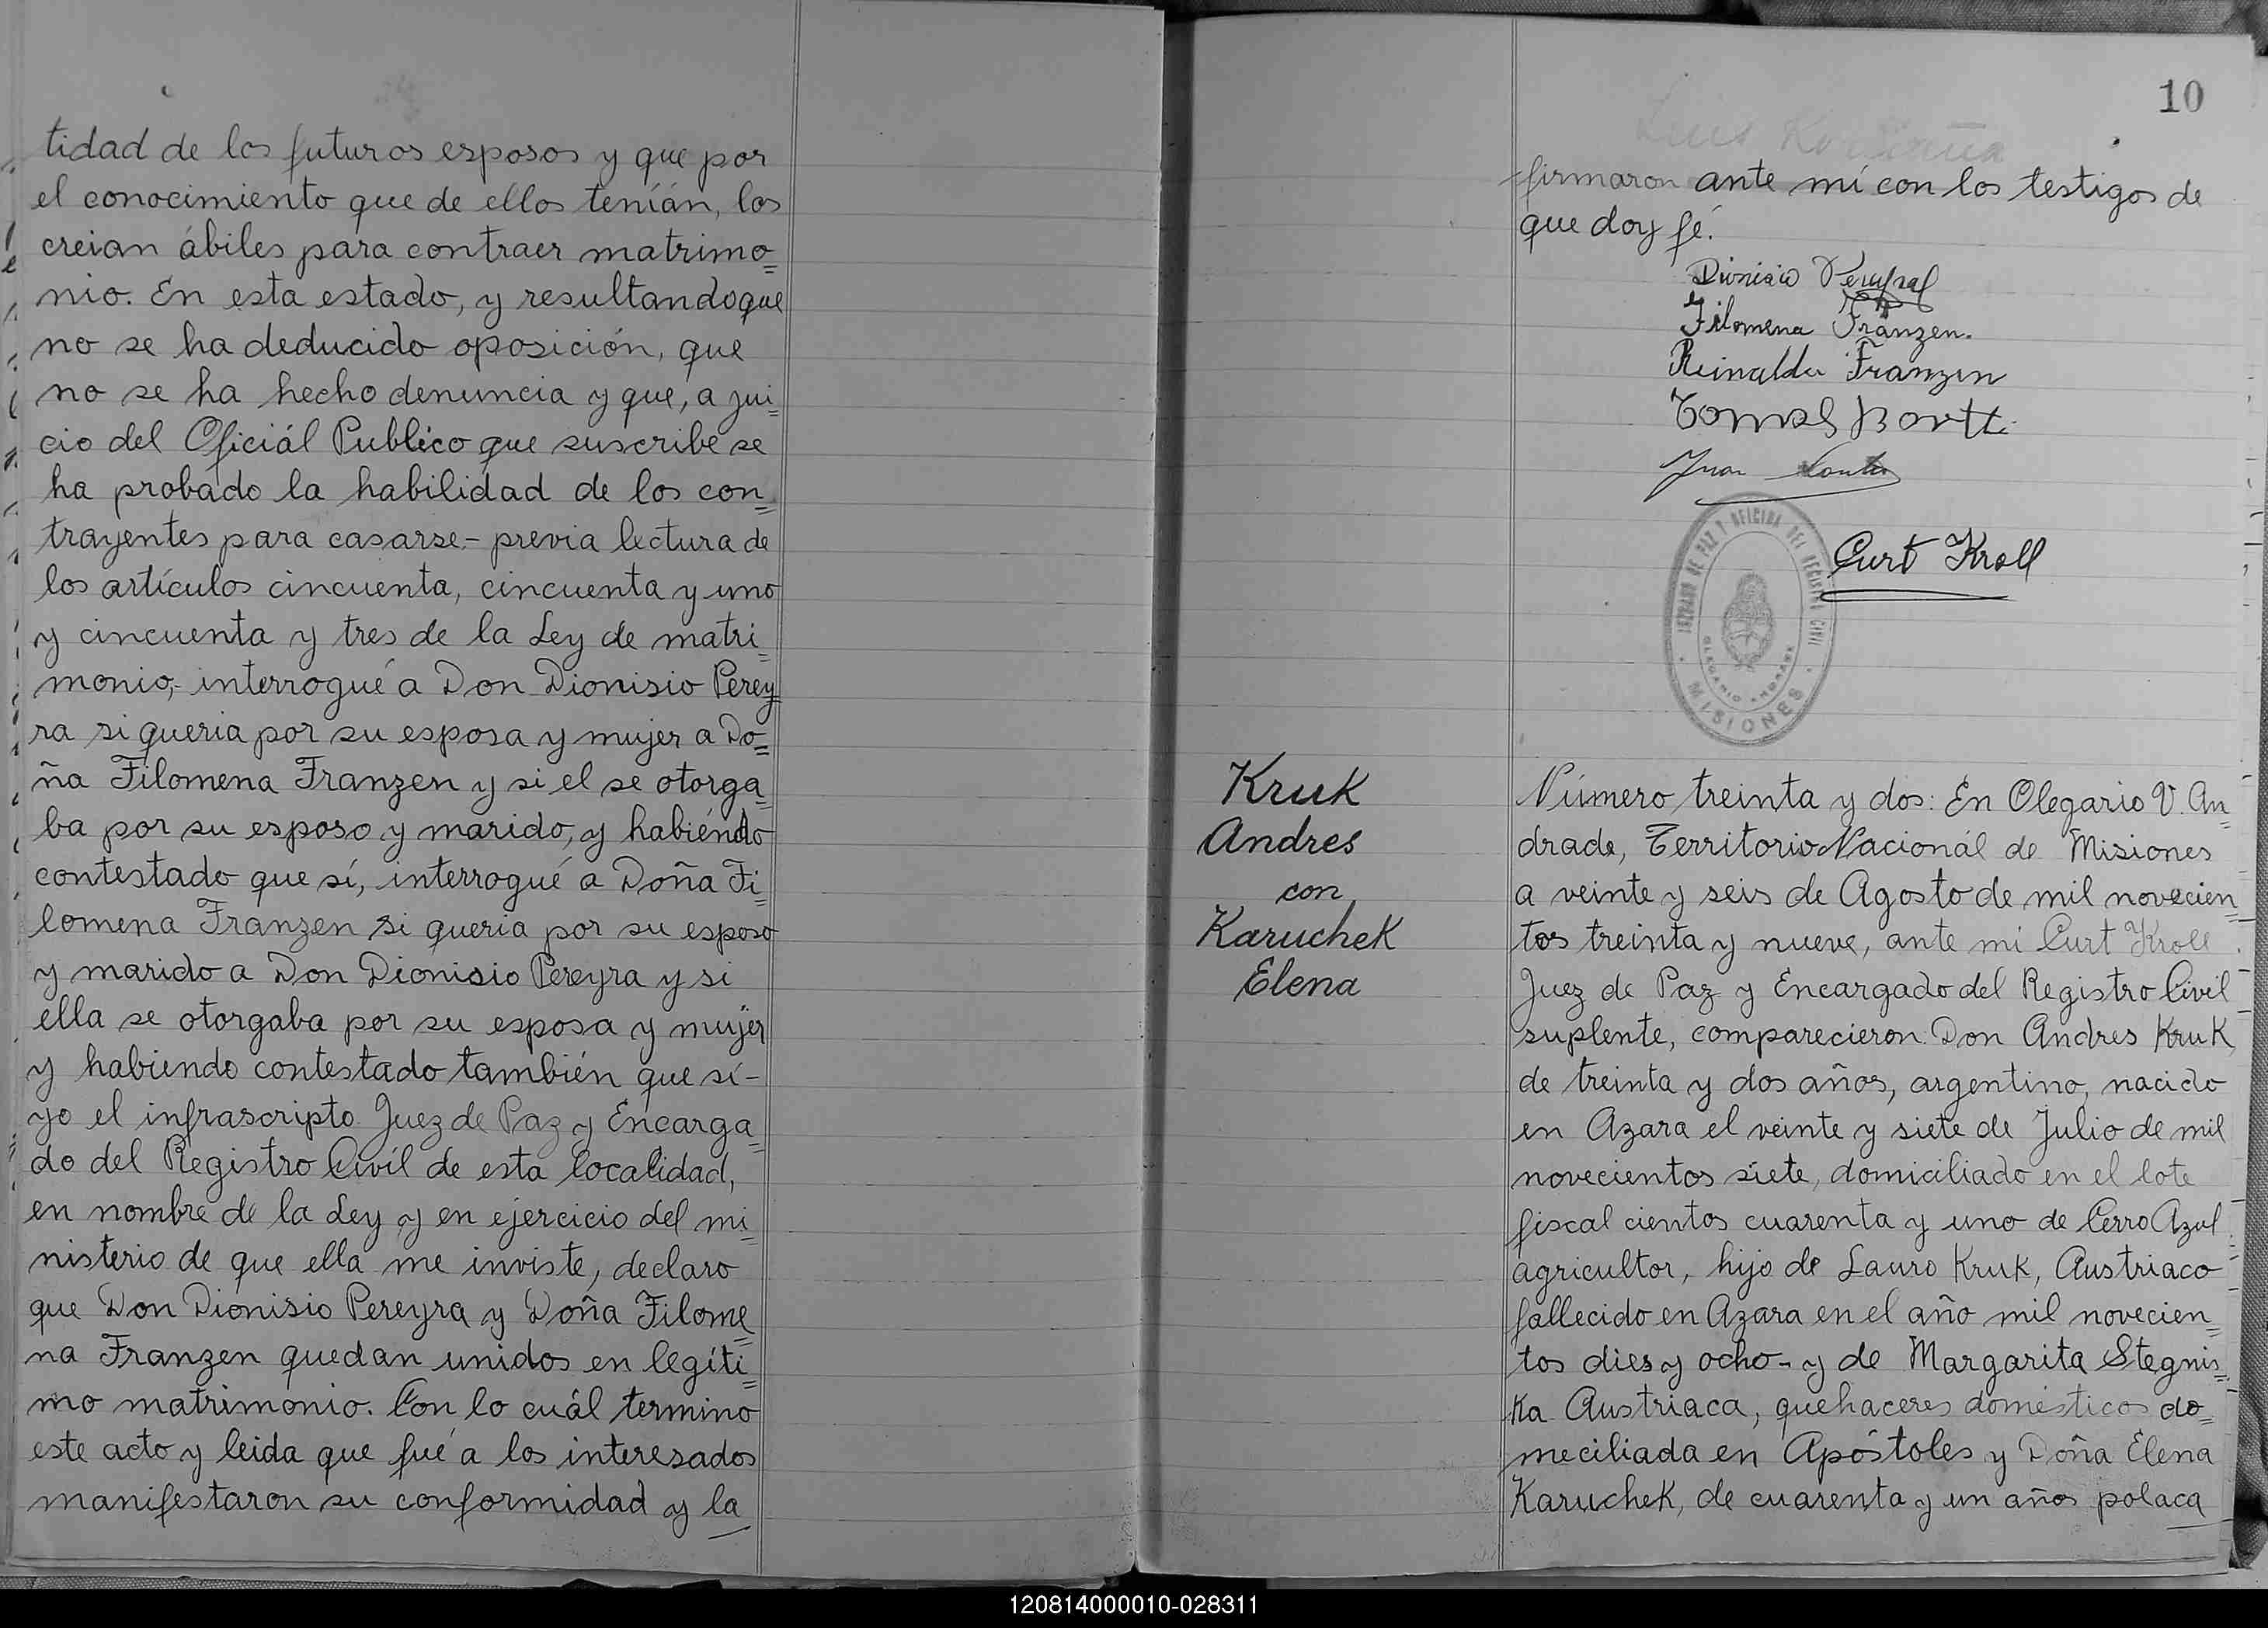 tidad de los futuros esposos y que por
el conocimiento que de ellos tenían, los
creian ábiles para contraer matrimo=
nio. En esta estado, y resultando que
no se ha deducido oposición, que
no se ha hecho denuncia y que, a jui=
cio del Oficiál Publico que suscribe se
ha probado la habilidad de los con=
trayentes para casarse.- previa lectura de
los artículos cincuenta, cincuenta y uno
y cincuenta y tres de la Ley de matri=
monio,- interrogué a Don Dionisio Perey
ra si queria por su esposa y mujer a Do=
ña Filomena Franzen y si el se otorga=
ba por su esposo y marido, y habiéndo
contestado que sí, interrogué a Doña Fi=
lomena Franzen si queria por su esposo
y marido a Don Dionisio Pereyra y si
ella se otorgaba por su esposa y mujer
y habiendo contestado también que sí-
yo el infrascripto Juez de Paz y Encarga=
do del Registro Civíl de esta localidad,
en nombre de la Ley y en ejercicio del mi=
nisterio de que ella me inviste, declaro
que Don Dionisio Pereyra y Doña Filome=
na Franzen quedan unidos en legíti=
mo matrimonio. Con lo cuál termino
este acto y leida que fué a los interesados
manifestaron su conformidad y la
10
Luis
firmaron ante mí con los testigos de
que doy fé.
Dionisio
Filomena Franzen.
Reinaldo Franzen
Tomas
Juan
Curt Kroll
JUZGADO DE PAZ Y OFICINA DEL REGISTRO CIVIL
OLEGARIO ANDRADE
MISIONES
Kruk
Andres
con
Karuchek
Elena
Número treinta y dos: En Olegario V. An=
drade, Territorio Nacionál de Misiones
a veinte y seis de Agosto de mil novecien=
tos treinta y nueve, ante mi Curt Kroll
Juez de Paz y Encargado del Registro Civil
suplente, comparecieron: Don Andres Kruk,
de treinta y dos años, argentino, nacido
en Azara el veinte y siete de Julio de mil
novecientos siete, domiciliado en el lote
fiscal cientos cuarenta y uno de Cerro Azul
agricultor, hijo de Lauro Kruk, Austriaco
fallecido en Azara en el año mil novecien=
tos dies y ocho- y de Margarita Stegnis=
ka Austriaca, quehaceres domésticos do=
meciliada en Apóstoles y Doña Elena
Karuchek, de cuarenta y un años polaca
120814000010-028311